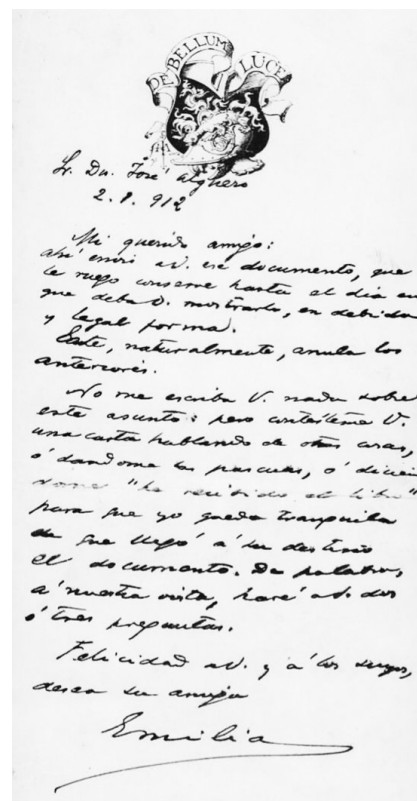 DE BELLUM LUCE
Sr. Dn. José Alguero
2. 1. 912
Mi querido amigo:
ahí envio a V. ese documento, que
le ruego conserve hasta el día en
que deba V. mostrarlo, en debida
y legal forma.
Este, naturalmente, anula los
anteriores.
No me escriba V. nada sobre
este asunto: pero contésteme V.
una carta hablando de otras cosas,
ó dandome las pascuas, ó dicien
dome "he recibido el libro"
para que yo quede tranquila
de que llegó á su destino
el documento. De palabra,
á nuestra vista, haré a V. dos
ó tres preguntas.
Felicidad a V. y á los suyos,
desea su amiga
Emilia